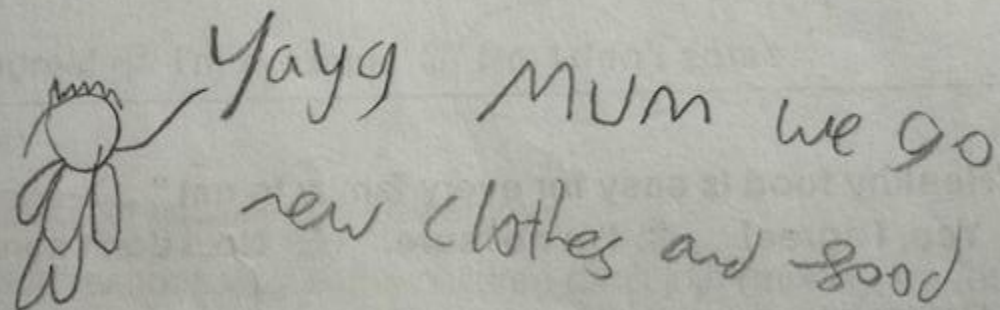 Yayy MUM we go
new clothes and food